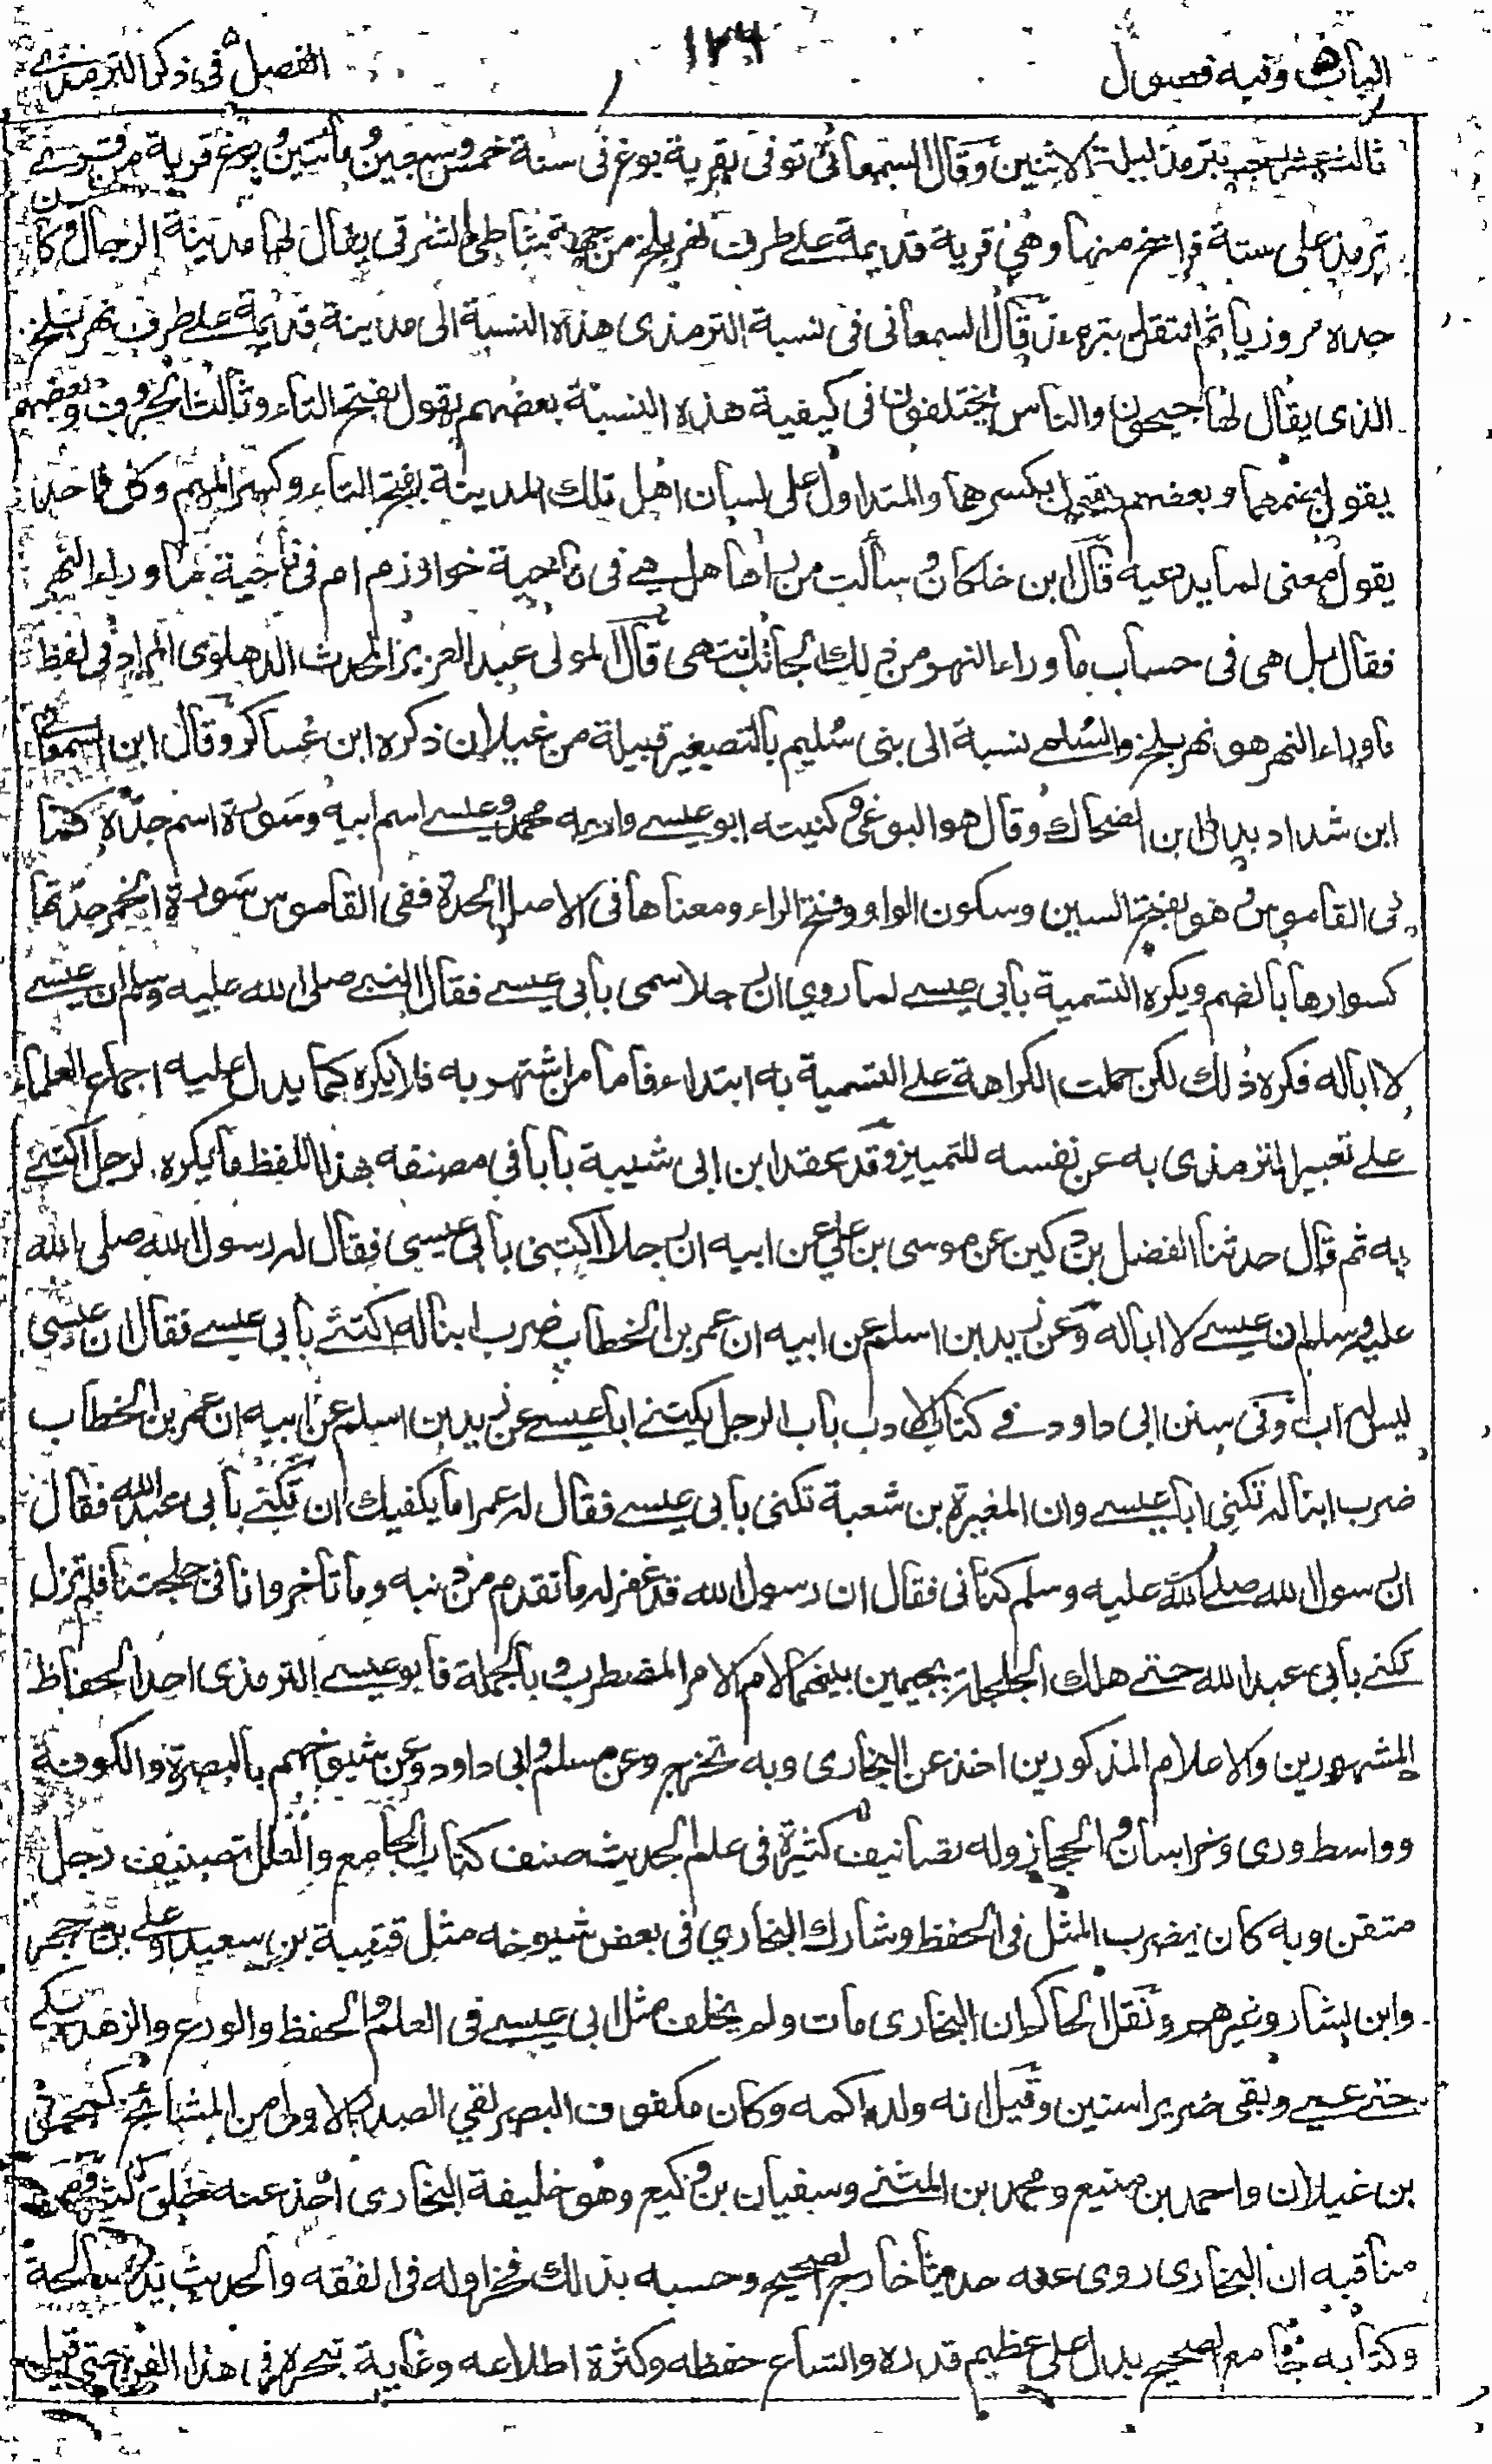 الباب وفيه فصول
١٢٦
الفصل في ذكر الترمذي
ثالث عشر رجب بترمذ ليلة الاثنين وقال السمعاني توفى بقرية بوغ فى سنة خمس وسبعين ومأتين وبوغ قرية من قرى
ترمذ على ستة فراسخ منها وهي قرية قديمة على طرف نهر بلخ من جهة شاطئ الشرقى يقال لها مدينة الرجال وكان
جده مروزيا ثم انتقل بترمذ قال السمعانى فى نسبة الترمذى هذه النسبة الى مدينة قديمة على طرف نهر بلخ
الذى يقال لها جيحون والناس يختلفون فى كيفية هذه النسبة بعضهم يقول بفتح التاء وثالث الحروف وبعضهم
يقول بضمهما وبعضهم يقول بكسرهما والمتداول على لسان اهل تلك المدينة بفتح التاء وكسر الميم وكل واحد
يقول معنى لما يدعيه قال ابن خلكان وسألت من رأها هل هي في ناحية خوارزم ام فى ناحية ما وراء النهر
فقال بل هى فى حساب ما وراء النهر ومن ذلك الجانب انتهى قال المولى عبد العزيز المحدث الدهلوى المراد فى لفظ
ماوراء النهر هو نهر بلخ والسلمي نسبة الى بنى سُليم بالتصغير قبيلة من غيلان ذكره ابن عساكر وقال ابن السمعانى
ابن شداد بدل ابن الضحاك وقال هو البوغى وكنيته ابو عيسى واسمه محمد وعيسى اسم ابيه وسورة اسم جدّه كما
فى القاموس وهو بفتح السين وسكون الواو وفتح الراء ومعناها فى الاصل الحدة ففى القاموس سَورة الخمر حدّتها
كسوارها بالضم ويكره التسمية بأبى عيسى لما روي ان رجلا سمى بأبى عيسى فقال النبي صلى الله عليه وسلم ان عيسى
لا اباله فكره ذلك لكن حملت الكراهة على التسمية به ابتداء فاما من اشتهر به فلا يكره كما يدل عليه اجماع العلماء
على تعبير الترمذى به عن نفسه للتمييز وقد عقد ابن ابى شيبة بابا فى مصنفه بهذا اللفظ ما يكره لرجل اكتنى
به ثم قال حدثنا الفضل بن دكين عن موسى بن على عن ابيه ان رجلا اكتنى بأبى عيسى فقال له رسول الله صلى الله
عليه وسلم ان عيسى لا اباله وعن زيد بن اسلم عن ابيه ان عمر بن الخطاب ضرب ابنا له اكتنى بأبى عيسى فقال ان عيسى
ليس له اب وفى سنن ابى داود في كتاب الادب باب الرجل يكتنى ابا عيسى عن زيد بن اسلم عن ابيه ان عمر بن الخطاب
ضرب ابنا له تكنى ابا عيسى وان المغيرة بن شعبة تكنى بأبى عيسى فقال له عمر اما يكفيك ان تكتنى بأبى عبد الله فقال
ان رسول الله صلى الله عليه وسلم كنانى فقال ان رسول الله قد غفر له ما تقدم من ذنبه وما تأخر وانا فى جلجتنا فلم تزل
تكنى بأبى عبد الله حتى هلك الجلجلة بجيمين بينهما لام الامر المضطرب وبالجملة فابو عيسى الترمذى احد الحفاظ
المشهورين والاعلام المذكورين اخذ عن البخارى وبه تخرج وعن مسلم وابى داود وعن شيوخهم بالبصرة والكوفة
وواسط ورى وخراسان والحجاز وله تصانيف كثيرة فى علم الحديث صنف كتاب الجامع والعلل تصنيف رجل
متقن وبه كان يضرب المثل فى الحفظ وشارك البخاري فى بعض شيوخه مثل قتيبة بن سعيد وعلى بن حجر
وابن بشار وغيرهم ونقل الحاكم ان البخارى مات ولم يخلف مثل ابى عيسى فى العلم والحفظ والورع والزهد بكى
حتى عمي وبقى ضريرا سنين وقيل انه ولد اكمه وكان مكفوف البصر لقي الصدر الاول من المشائخ كمحمود
بن غيلان واحمد بن منيع ومحمد بن المثنى وسفيان بن وكيع وهو خليفة البخارى اخذ عنه خلق كثير ومن
مناقبه ان البخارى روى عنه حديثا خارج الصحيح وحسبه بذلك فخرا وله فى الفقه والحديث يد صالحة
وكتابه جامع الصحيح يدل على عظيم قدره واتساع حفظه وكثرة اطلاعه وغاية تبحره فى هذا الفن حتى قيل